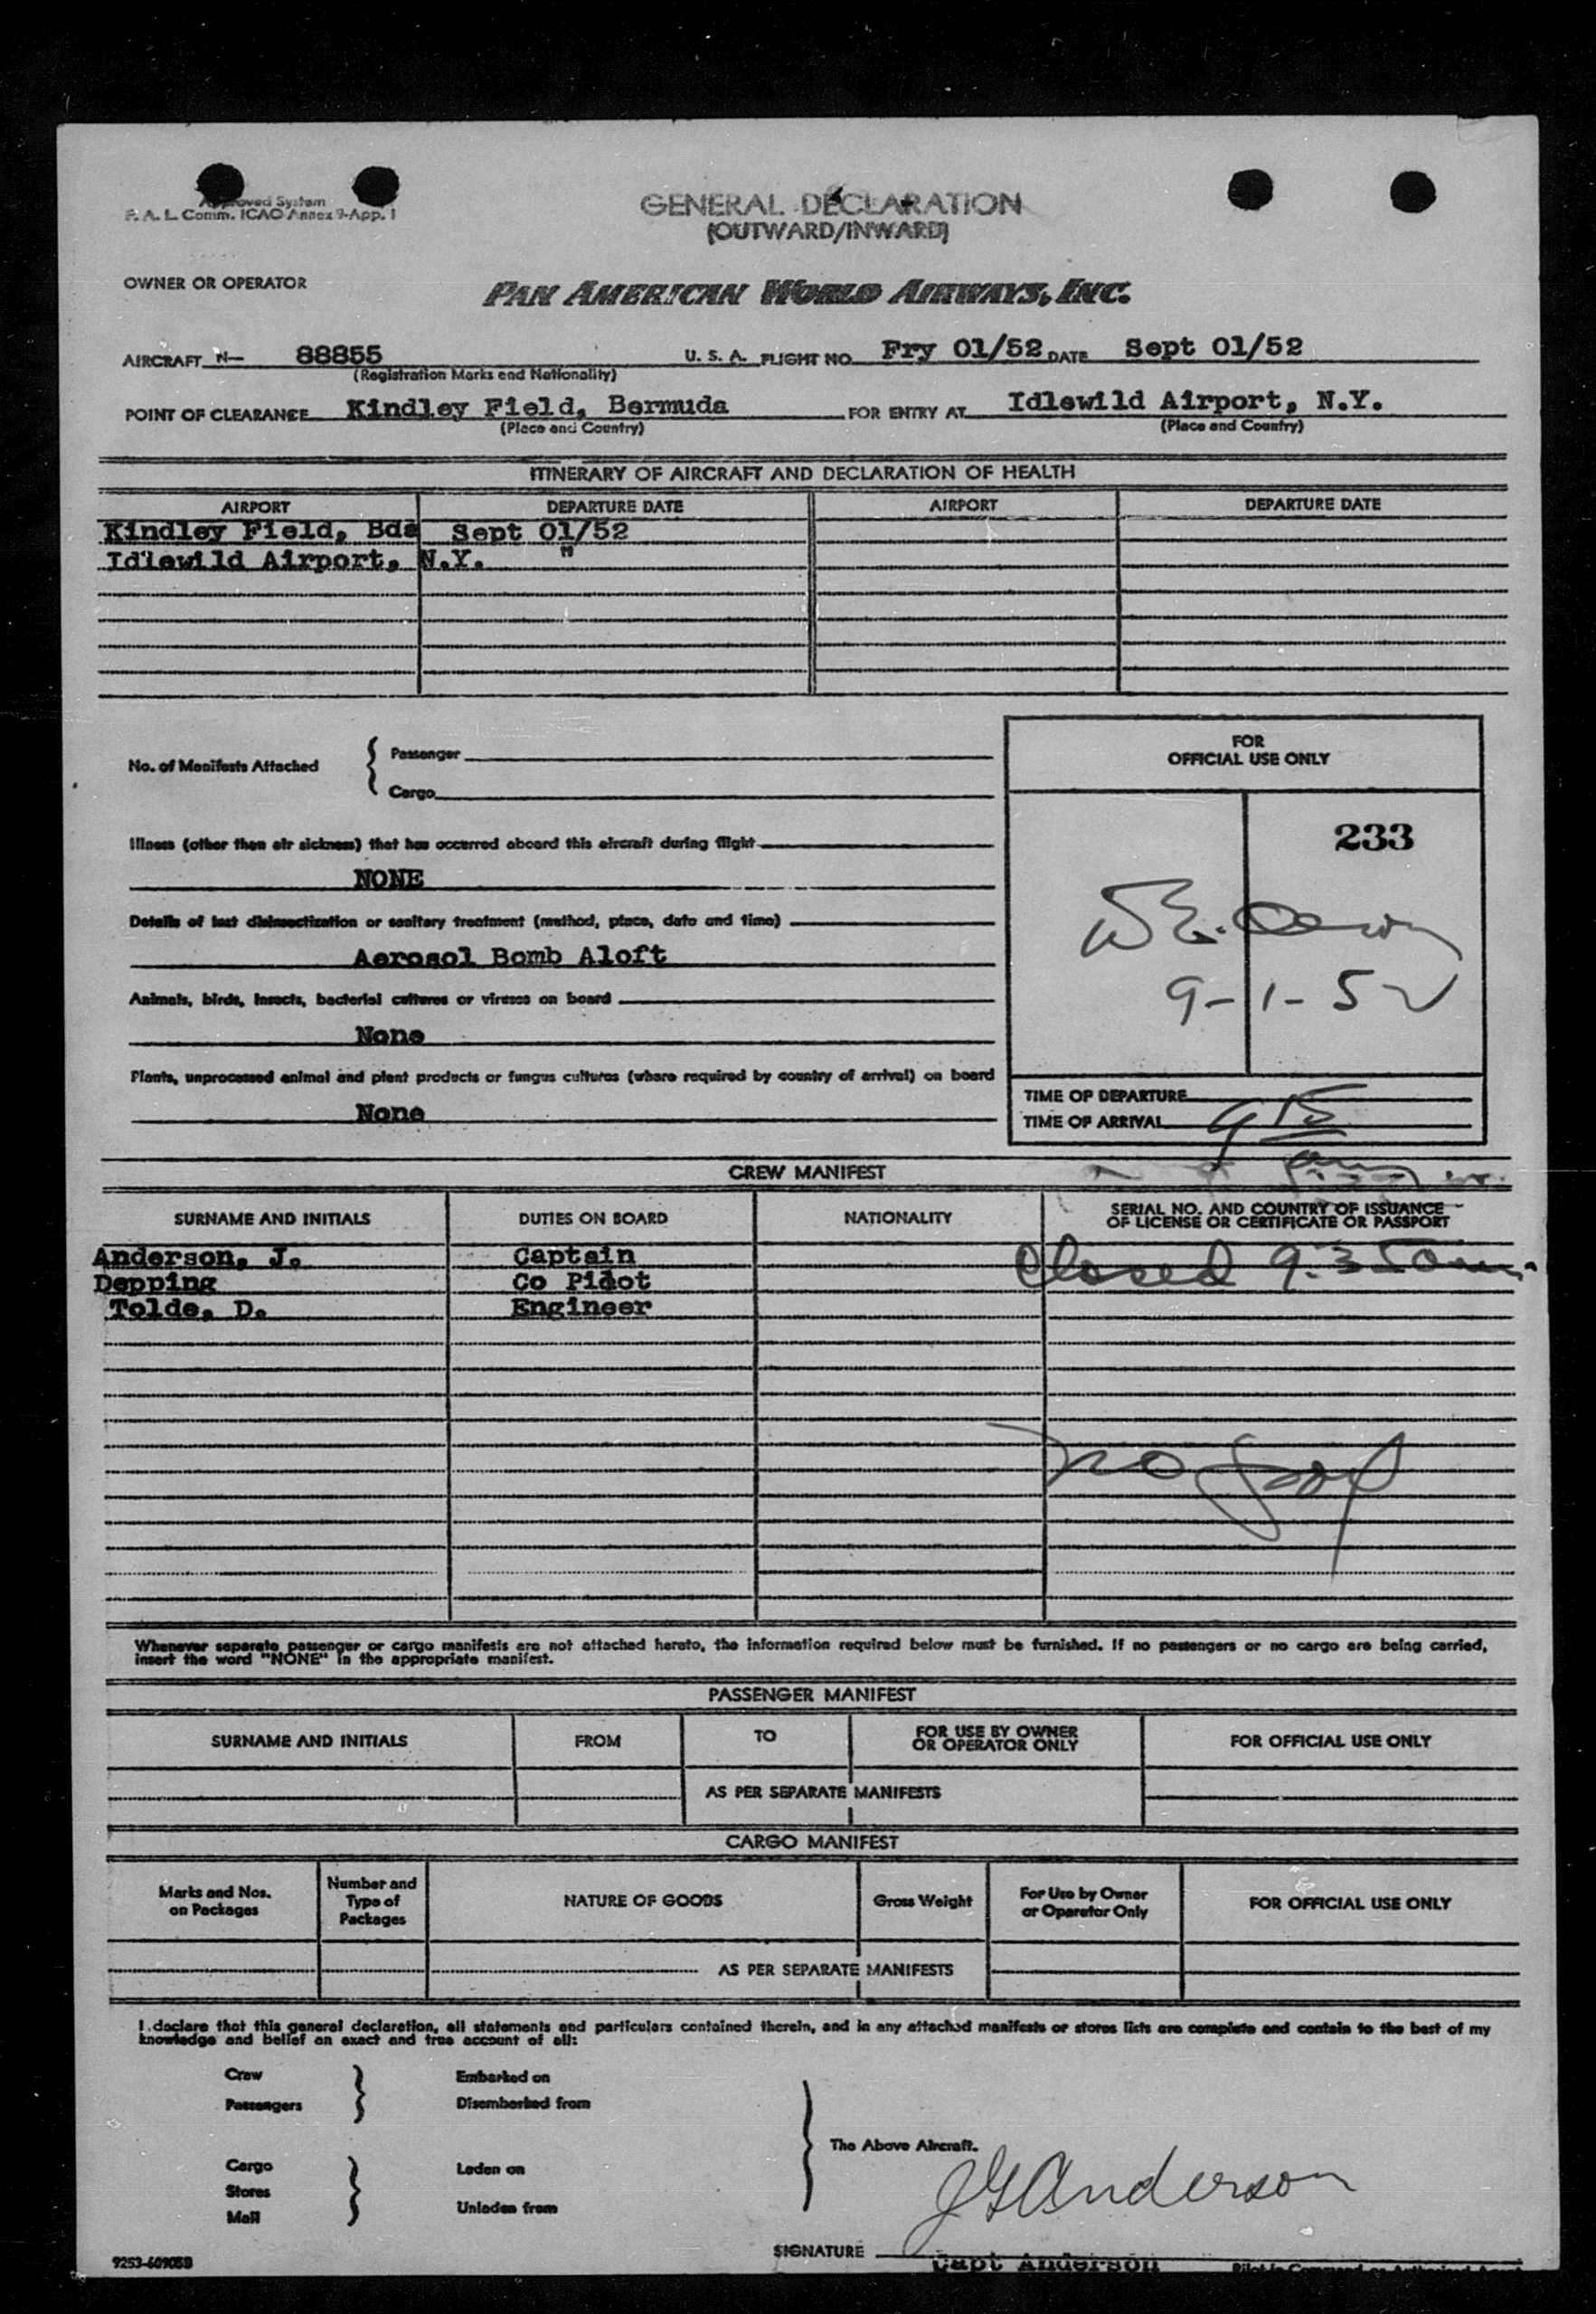 Approved System
F. A. L. Comm. ICAO Annex 9-App. 1
GENERAL DECLARATION
(OUTWARD/INWARD)
OWNER OR OPERATOR
PAN AMERICAN WORLD AIRWAYS, INC.
AIRCRAFT N— 88855 U. S. A. FLIGHT NO. Fry 01/52 DATE Sept 01/52
(Registration Marks and Nationality)
POINT OF CLEARANCE Kindley Field, Bermuda FOR ENTRY AT Idlewild Airport, N.Y.
(Place and Country) (Place and Country)
ITINERARY OF AIRCRAFT AND DECLARATION OF HEALTH
AIRPORT DEPARTURE DATE AIRPORT DEPARTURE DATE
Kindley Field, Bda Sept 01/52
Idlewild Airport, N.Y. "
No. of Manifests Attached { Passenger
Cargo
FOR
OFFICIAL USE ONLY
233
9-1-52
Illness (other than air sickness) that has occurred aboard this aircraft during flight
NONE
Details of last disinsectization or sanitary treatment (method, place, date and time)
Aerosol Bomb Aloft
Animals, birds, insects, bacterial cultures or viruses on board
None
Plants, unprocessed animal and plant products or fungus cultures (where required by country of arrival) on board
None
TIME OF DEPARTURE
TIME OF ARRIVAL 9 15
CREW MANIFEST
SURNAME AND INITIALS DUTIES ON BOARD NATIONALITY SERIAL NO. AND COUNTRY OF ISSUANCE
OF LICENSE OR CERTIFICATE OR PASSPORT
Anderson, J. Captain
Closed 9:35 am.
Depping Co Pidot
Tolde, D. Engineer
no
Whenever separate passenger or cargo manifests are not attached hereto, the information required below must be furnished. If no passengers or no cargo are being carried,
insert the word "NONE" in the appropriate manifest.
PASSENGER MANIFEST
SURNAME AND INITIALS FROM TO FOR USE BY OWNER
OR OPERATOR ONLY FOR OFFICIAL USE ONLY
AS PER SEPARATE MANIFESTS
CARGO MANIFEST
Marks and Nos.
on Packages
Number and
Type of
Packages
NATURE OF GOODS
Gross Weight
For Use by Owner
or Operator Only
FOR OFFICIAL USE ONLY
AS PER SEPARATE MANIFESTS
I declare that this general declaration, all statements and particulars contained therein, and in any attached manifests or stores lists are complete and contain to the best of my
knowledge and belief an exact and true account of all:
Crew Embarked on
Passengers Disembarked from
The Above Aircraft.
Cargo Laden on
Stores
Mail Unladen from
JGAnderson
SIGNATURE Capt Anderson
9253-60905B